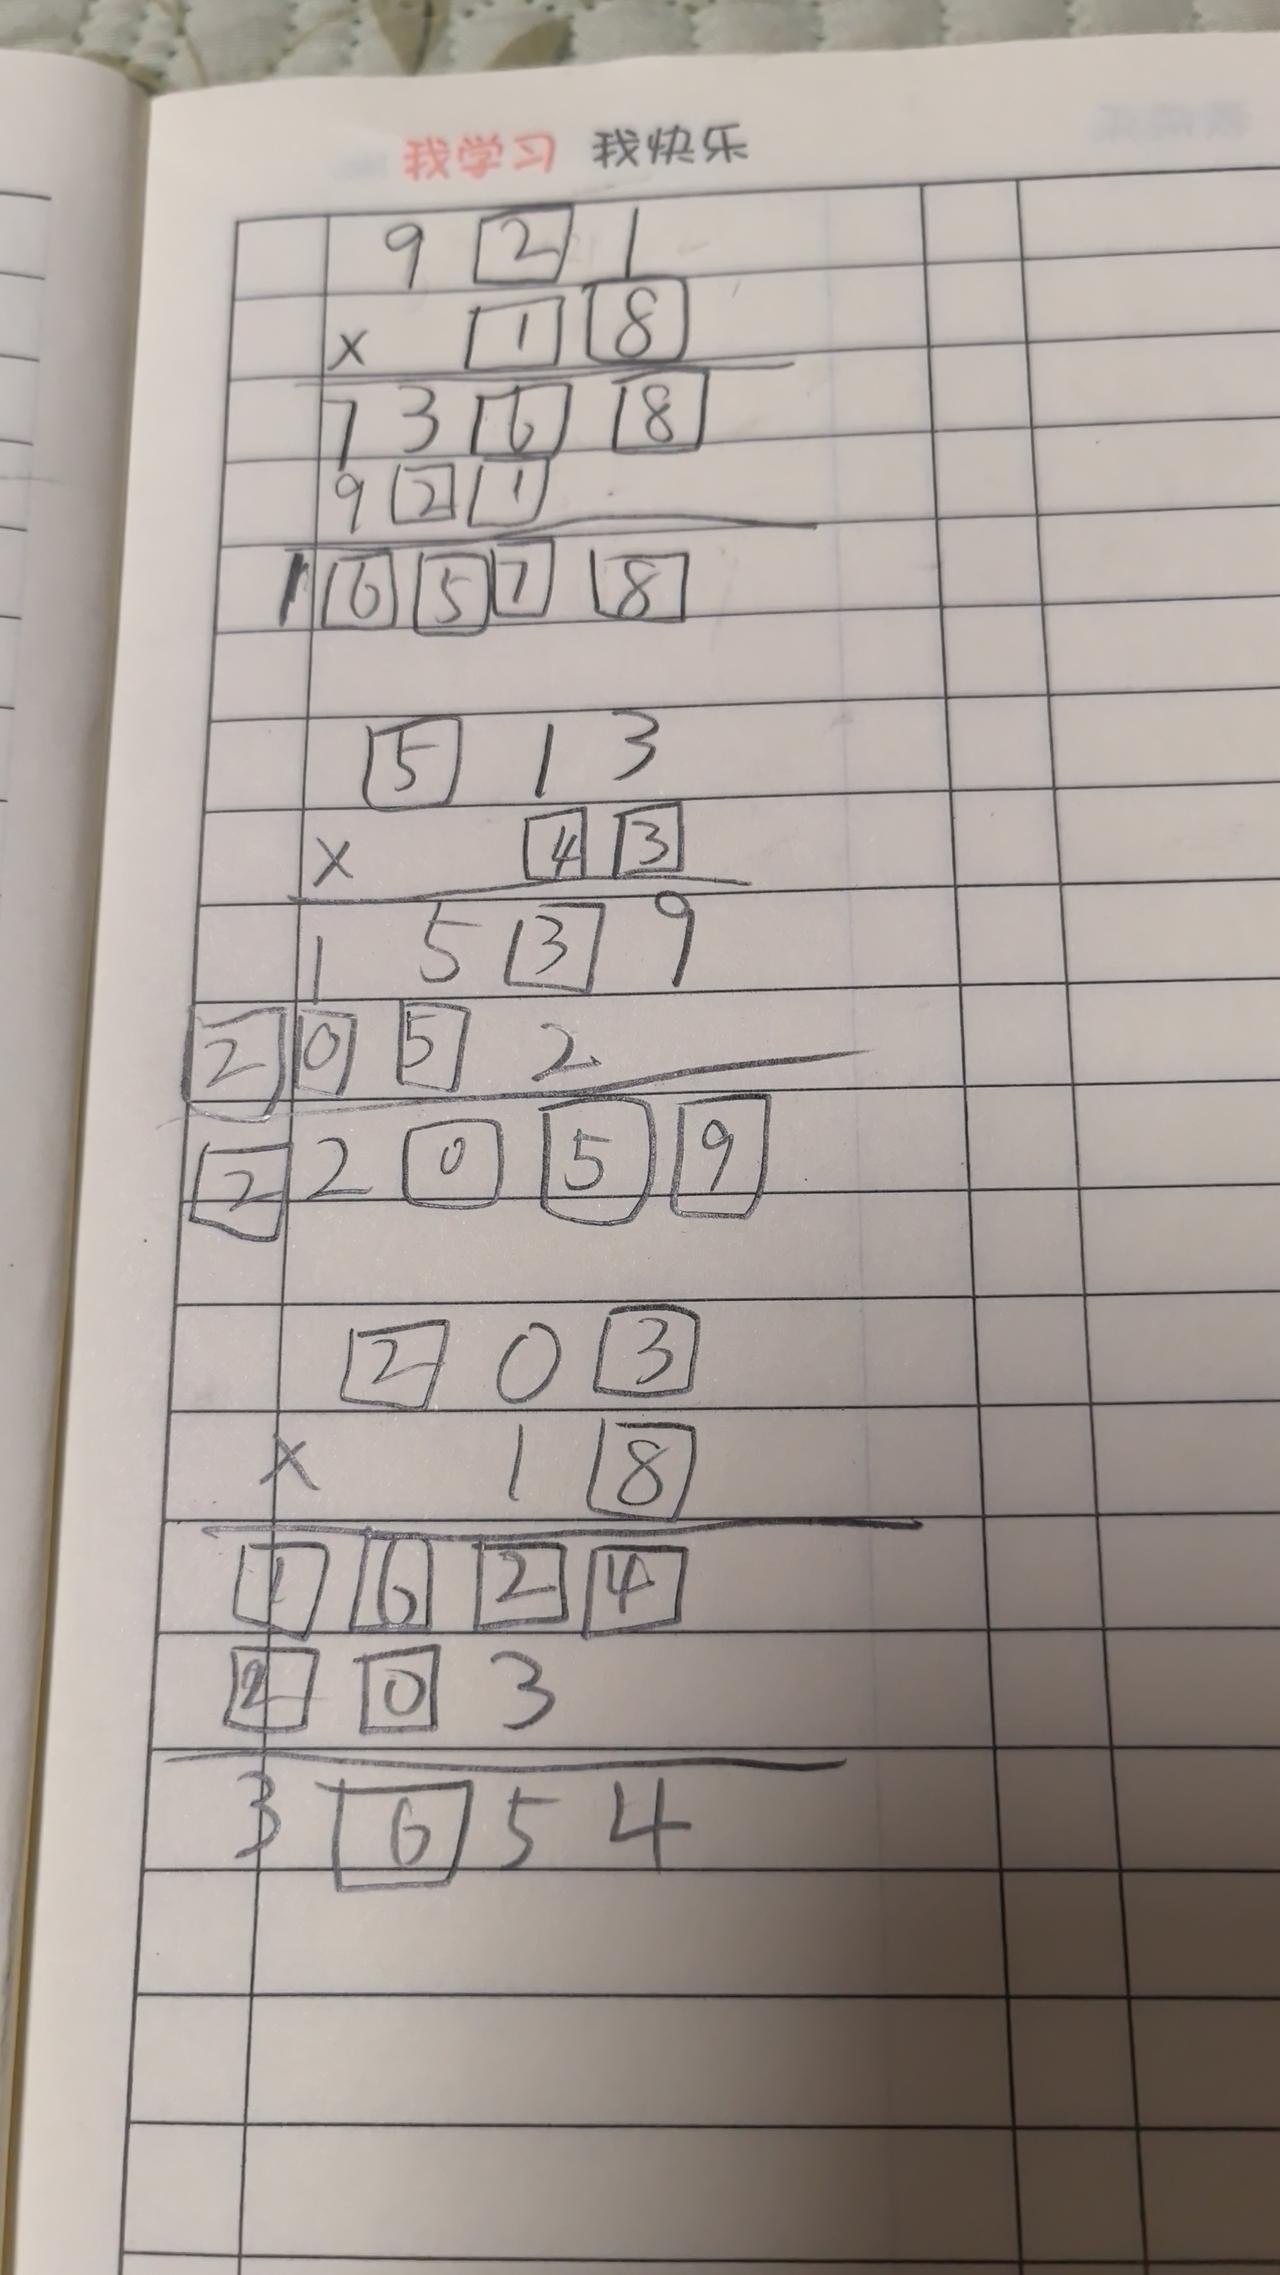 我学习 我快乐
9 2 1
× 1 8
7 3 6 8
9 2 1
1 6 5 7 8
5 1 3
× 4 3
1 5 3 9
2 0 5 2
2 2 0 5 9
2 0 3
× 1 8
1 6 2 4
2 0 3
3 6 5 4